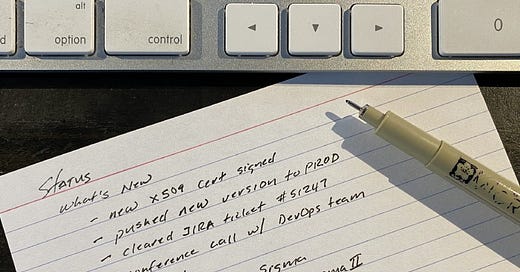 alt
option
control
◄
▼
►
0
Status
What's New
- new x509 cert signed
- pushed new version to PROD
- cleared JIRA ticket #51247
conference call w/ DevOps team
Sigma
II